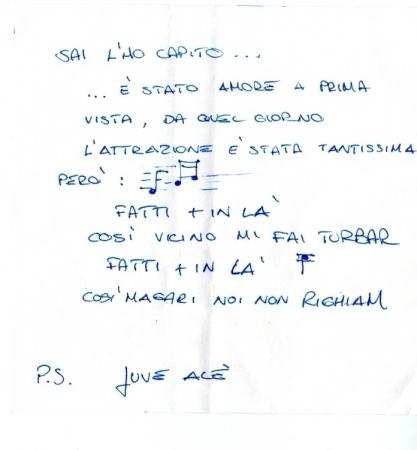 SAI L'HO CAPITO...
... È STATO AMORE A PRIMA
VISTA, DA QUEL GIORNO
L'ATTRAZIONE È STATA TANTISSIMA
PERÒ:
FATTI + IN LÀ
COSÌ VICINO MI FAI TURBAR
FATTI + IN LÀ
COSÌ MAGARI NOI NON RIGHIAM
P.S. JUVE ALÈ